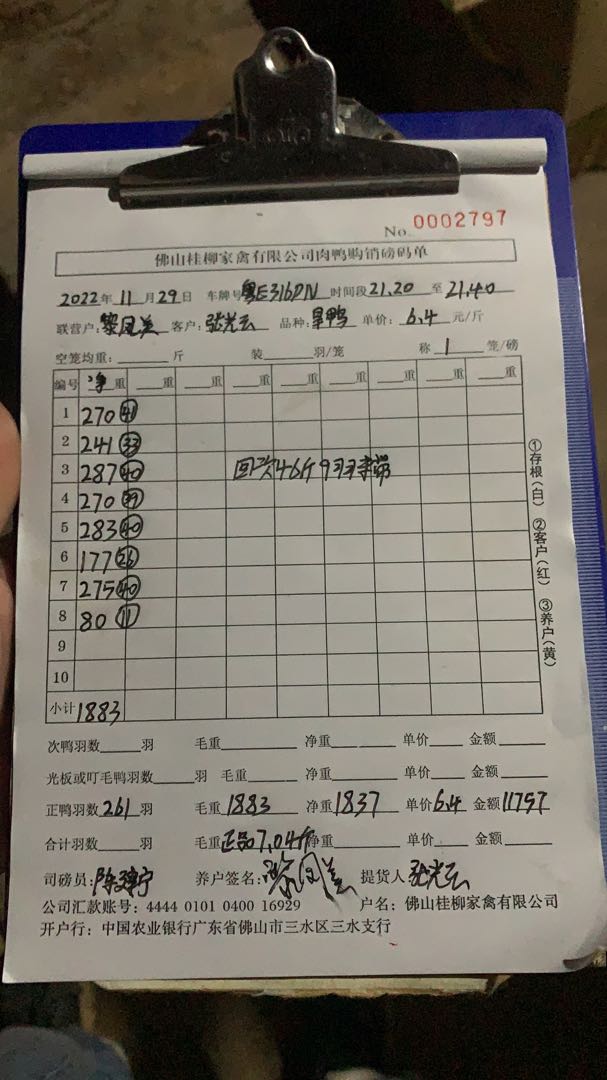 No. 0002797
佛山桂柳家禽有限公司肉鸭购销磅码单
2022年 11月29日 车牌号 粤E316DN 时间段 21.20 至 21.40
联营户: 黎凤美 客户: 张光云 品种: 旱鸭 单价: 6.4 元/斤
空笼均重: 斤 装 羽/笼 称 1 笼/磅
编号 净重 重 重 重 重 重 重 重
1 270 41
2 241 33
3 287 40 回次46斤9羽
4 270 39
5 283 40
6 177 26
7 275 40
8 80 11
9
10
小计 1883
①存根(白) ②客户(红) ③养户(黄)
次鸭羽数 羽 毛重 净重 单价 金额
光板或叮毛鸭羽数 羽 毛重 净重 单价 金额
正鸭羽数 261 羽 毛重 1883 净重 1837 单价 6.4 金额 11757
合计羽数 羽 毛重 正品7.04斤 净重 单价 金额
司磅员: 养户签名: 黎凤美 提货人 张光云
公司汇款账号: 4444 0101 0400 16929 户名: 佛山桂柳家禽有限公司
开户行: 中国农业银行广东省佛山市三水区三水支行